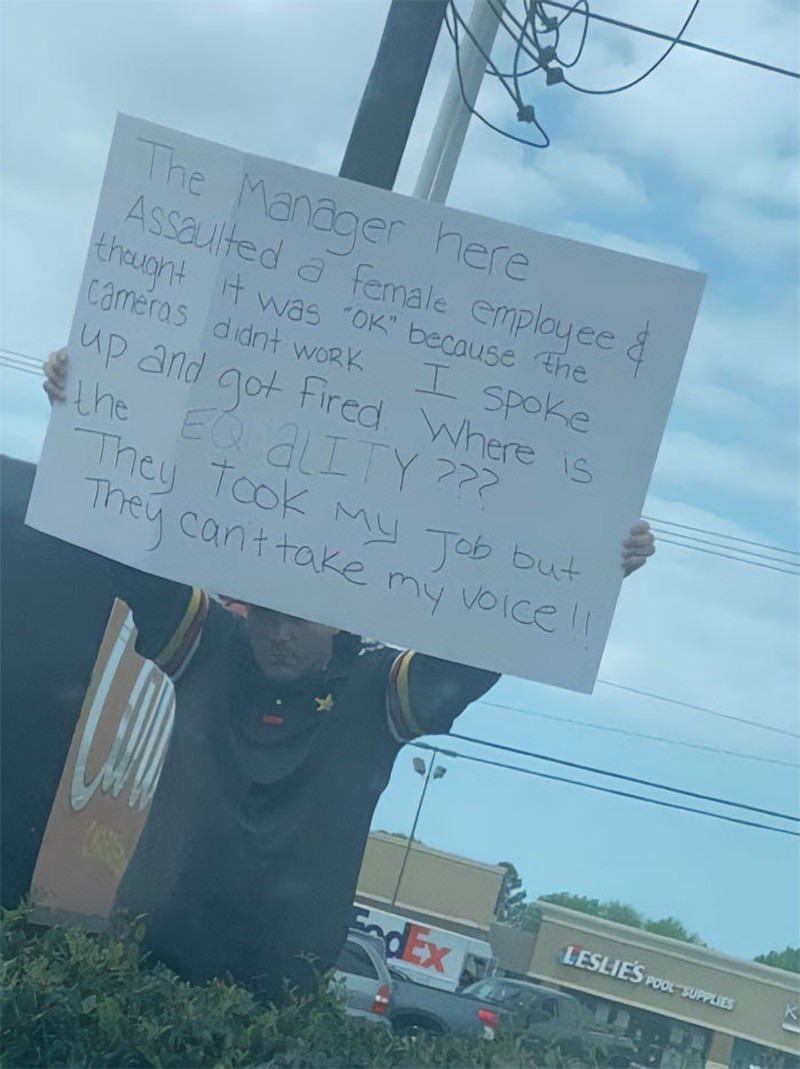 The Manager here
Assaulted a female employee &
thought it was "OK" because the
cameras didnt work I spoke
up and got fired Where is
the EQUALITY ???
They took my Job but
They can't take my voice!!
FedEx
LESLIE'S POOL SUPPLIES
K